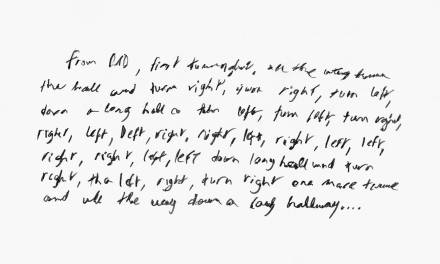 From DAD, first turn right, all the way down
the hall and turn right, turn right, turn left,
down a long hall a then left, turn left, turn right,
right, left, left, right, right, left, right, left, left,
right, right, left, left down long hall and turn
right, the left, right, turn right one more time
and all the way down a long hallway....